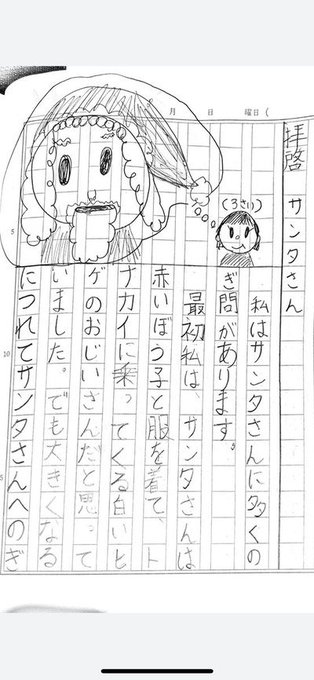 月 日 曜日(
拝啓 サンタさん
(3さい)
私はサンタさんに多くの
ぎ問があります。
最初私は、サンタさんは
赤いぼう子と服を着て、ト
ナカイに乗ってくる白いヒ
ゲのおじいさんだと思って
いました。でも大きくなる
につれてサンタさんへのぎ
5
10
5